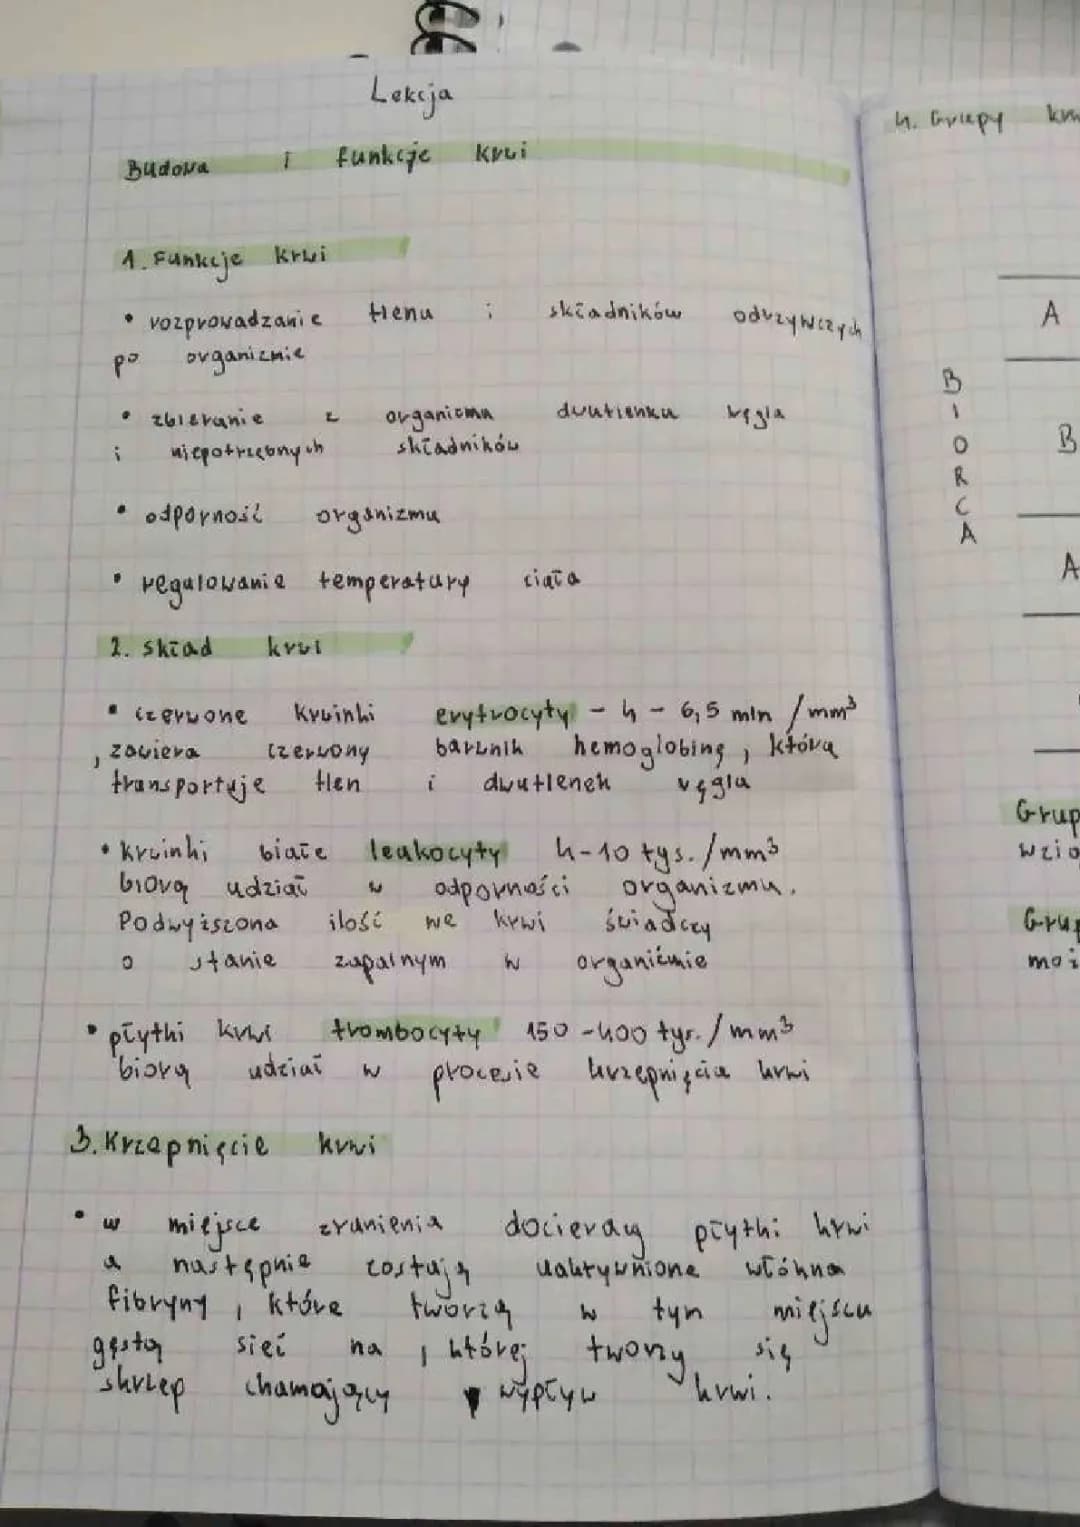 Lekcja
Budowa i funkcje krwi
1. Funkcje krwi
• rozprowadzanie tlenu i składników odrzywczych
po organizmie
• zbieranie z organizma dwutlenku węgla
i niepotrzebnych składników
• odporność organizmu
• regulowanie temperatury ciała
2. skład krwi
• czerwone krwinki erytrocyty - 4 - 6,5 mln /mm³
, zawiera czerwony barwnik hemoglobinę, która
transportuje tlen i dwutlenek węgla
• krwinki białe leukocyty 4-10 tys./mm³
biorą udział w odporności organizmu.
Podwyższona ilość we krwi świadczy
o stanie zapalnym w organiźmie
• płytki krwi trombocyty 150 -400 tys./mm³
biorą udział w procesie krzepnięcia krwi
3. Krzepnięcie krwi
• w miejsce zranienia docierają płytki krwi
a następnie zostają uaktywnione włókna
fibryny, które tworzą w tym miejscu
gęstą sieć na, której tworzy się
skrzep hamający wypływ krwi.
4. Grupy
A
B
A
BIORCA
Grup
wzio
Grup
moż